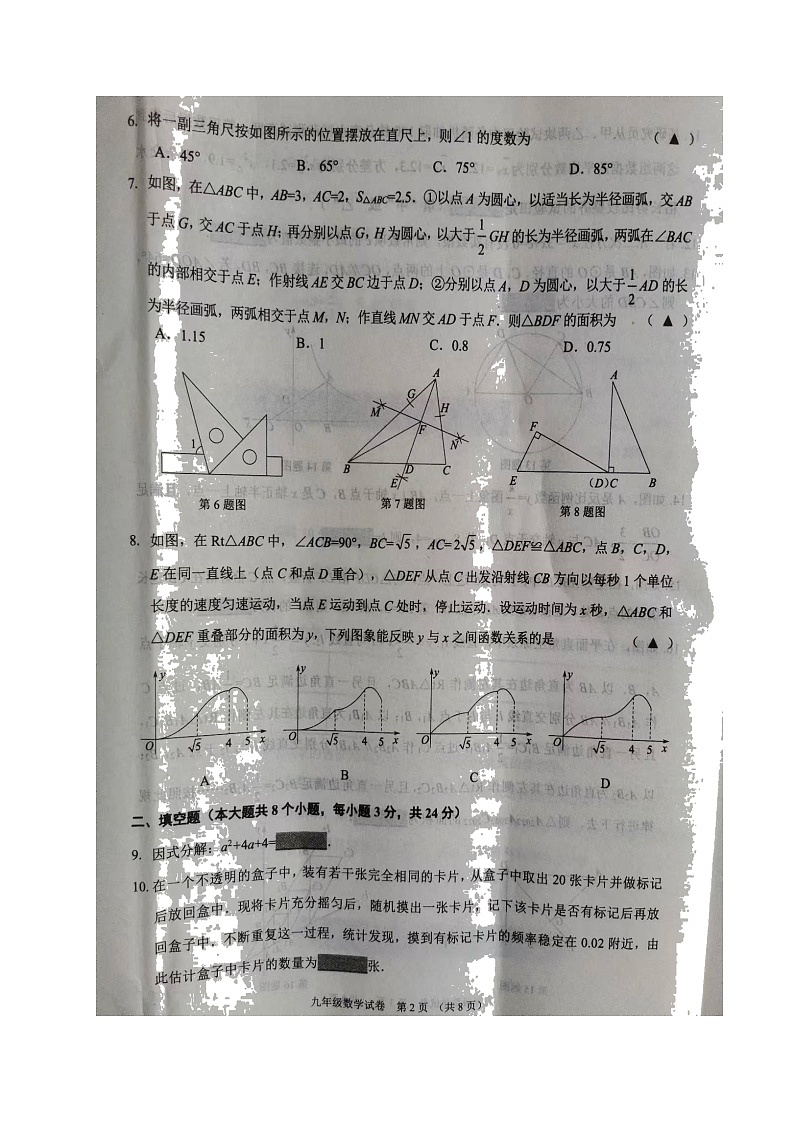 6. 将一副三角尺按如图所示的位置摆放在直尺上，则∠1的度数为 （ ▲ ）
A．45° B．65° C．75° D．85°
7. 如图，在△ABC中，AB=3，AC=2，S△ABC=2.5．①以点A为圆心，以适当长为半径画弧，交AB
于点G，交AC于点H；再分别以点G，H为圆心，以大于1/2GH的长为半径画弧，两弧在∠BAC
的内部相交于点E；作射线AE交BC边于点D；②分别以点A，D为圆心，以大于1/2AD的长
为半径画弧，两弧相交于点M，N；作直线MN交AD于点F．则△BDF的面积为 （ ▲ ）
A．1.15 B．1 C．0.8 D．0.75
1
第6题图
A G H M F N B D C E
第7题图
A F E (D)C B
第8题图
8. 如图，在Rt△ABC中，∠ACB=90°，BC=√5，AC=2√5，△DEF≌△ABC，点B，C，D，
E在同一直线上（点C和点D重合），△DEF从点C出发沿射线CB方向以每秒1个单位
长度的速度匀速运动，当点E运动到点C处时，停止运动．设运动时间为x秒，△ABC和
△DEF重叠部分的面积为y，下列图象能反映y与x之间函数关系的是 （ ▲ ）
y O √5 4 5 x
y O √5 4 5 x
y O √5 4 5 x
y O √5 4 5 x
A B C D
二、填空题（本大题共8个小题，每小题3分，共24分）
9. 因式分解：a²+4a+4= ．
10. 在一个不透明的盒子中，装有若干张完全相同的卡片，从盒子中取出20张卡片并做标记
后放回盒中．现将卡片充分摇匀后，随机摸出一张卡片，记下该卡片是否有标记后再放
回盒子中，不断重复这一过程，统计发现，摸到有标记卡片的频率稳定在0.02附近，由
此估计盒子中卡片的数量为 张．
九年级数学试卷 第2页 （共8页）